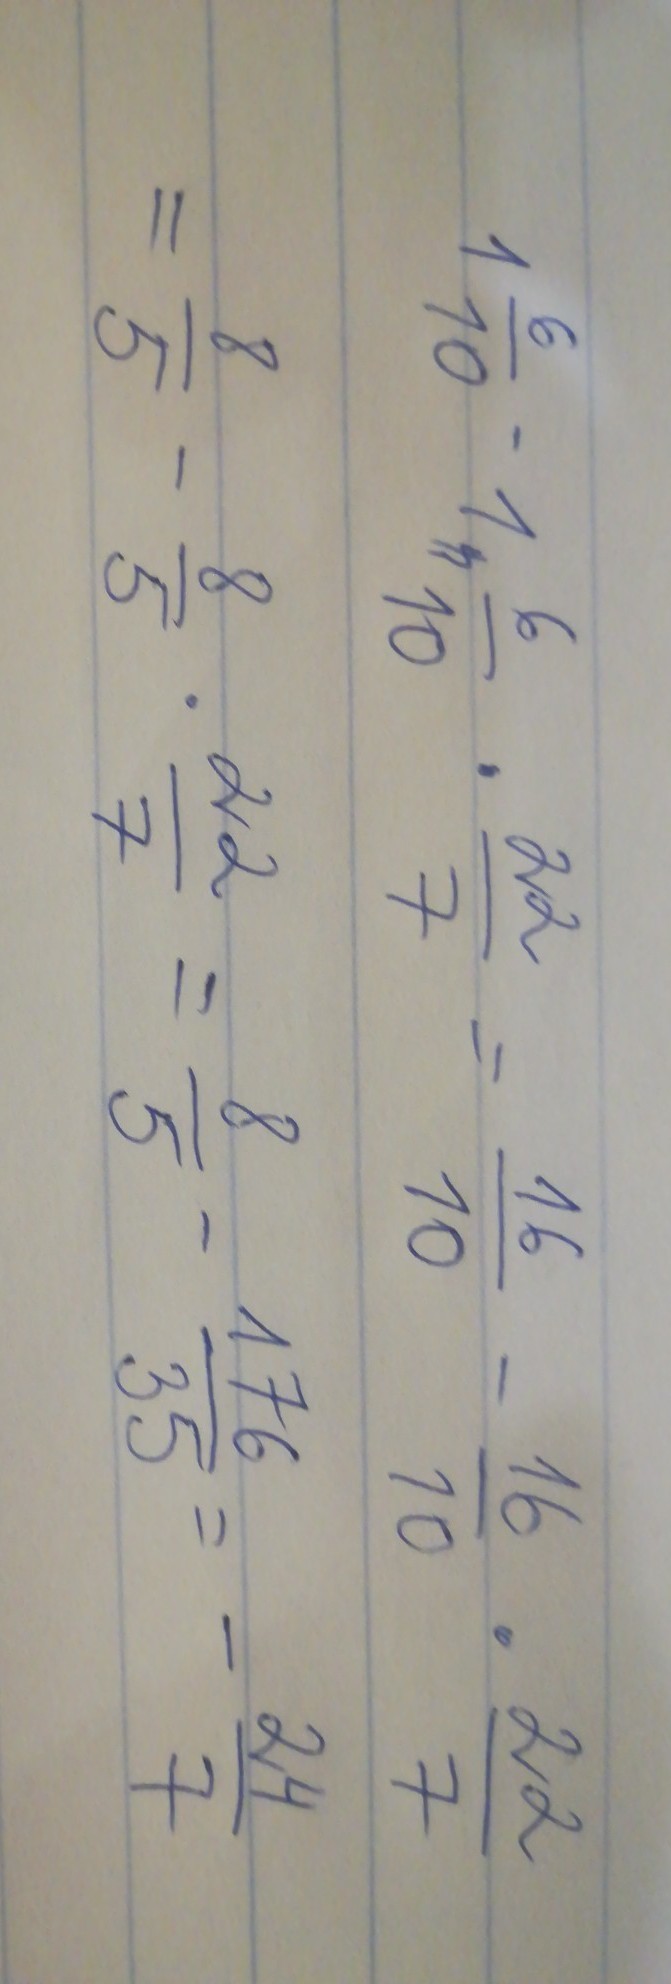 1 6/10 - 1 6/10 · 22/7 = 16/10 - 16/10 · 22/7
= 8/5 - 8/5 · 22/7 = 8/5 - 176/35 = - 24/7